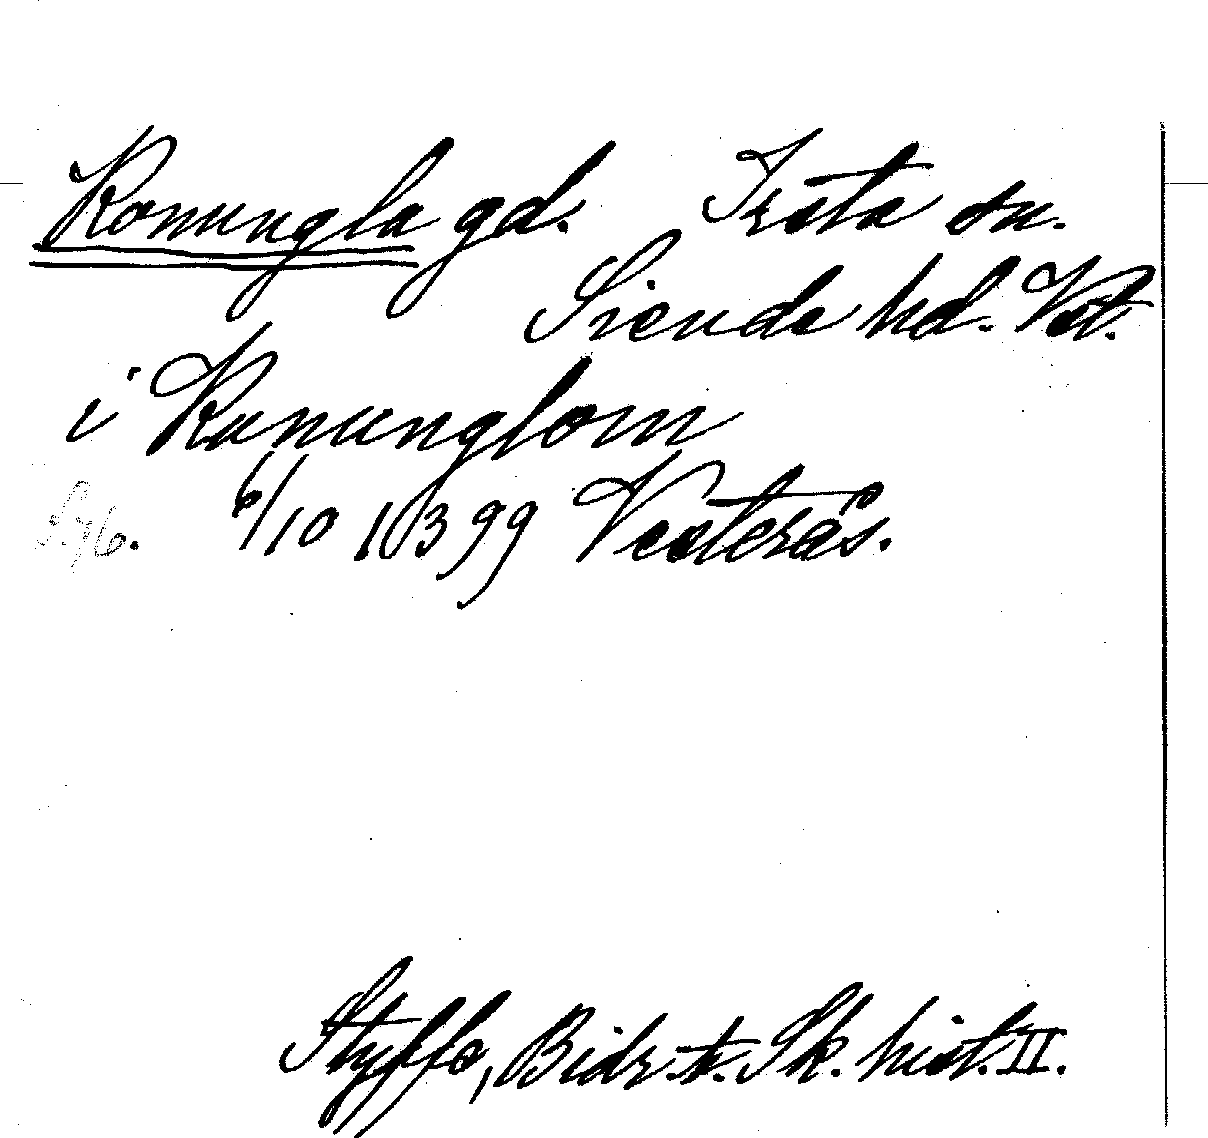 Konungla gd. Irsta sn.
Siende hd. Vst.
i Kununglom
S. 76. 6/10 1399 Vesterås.
Styffe, Bidr. t. Sk. hist. II.